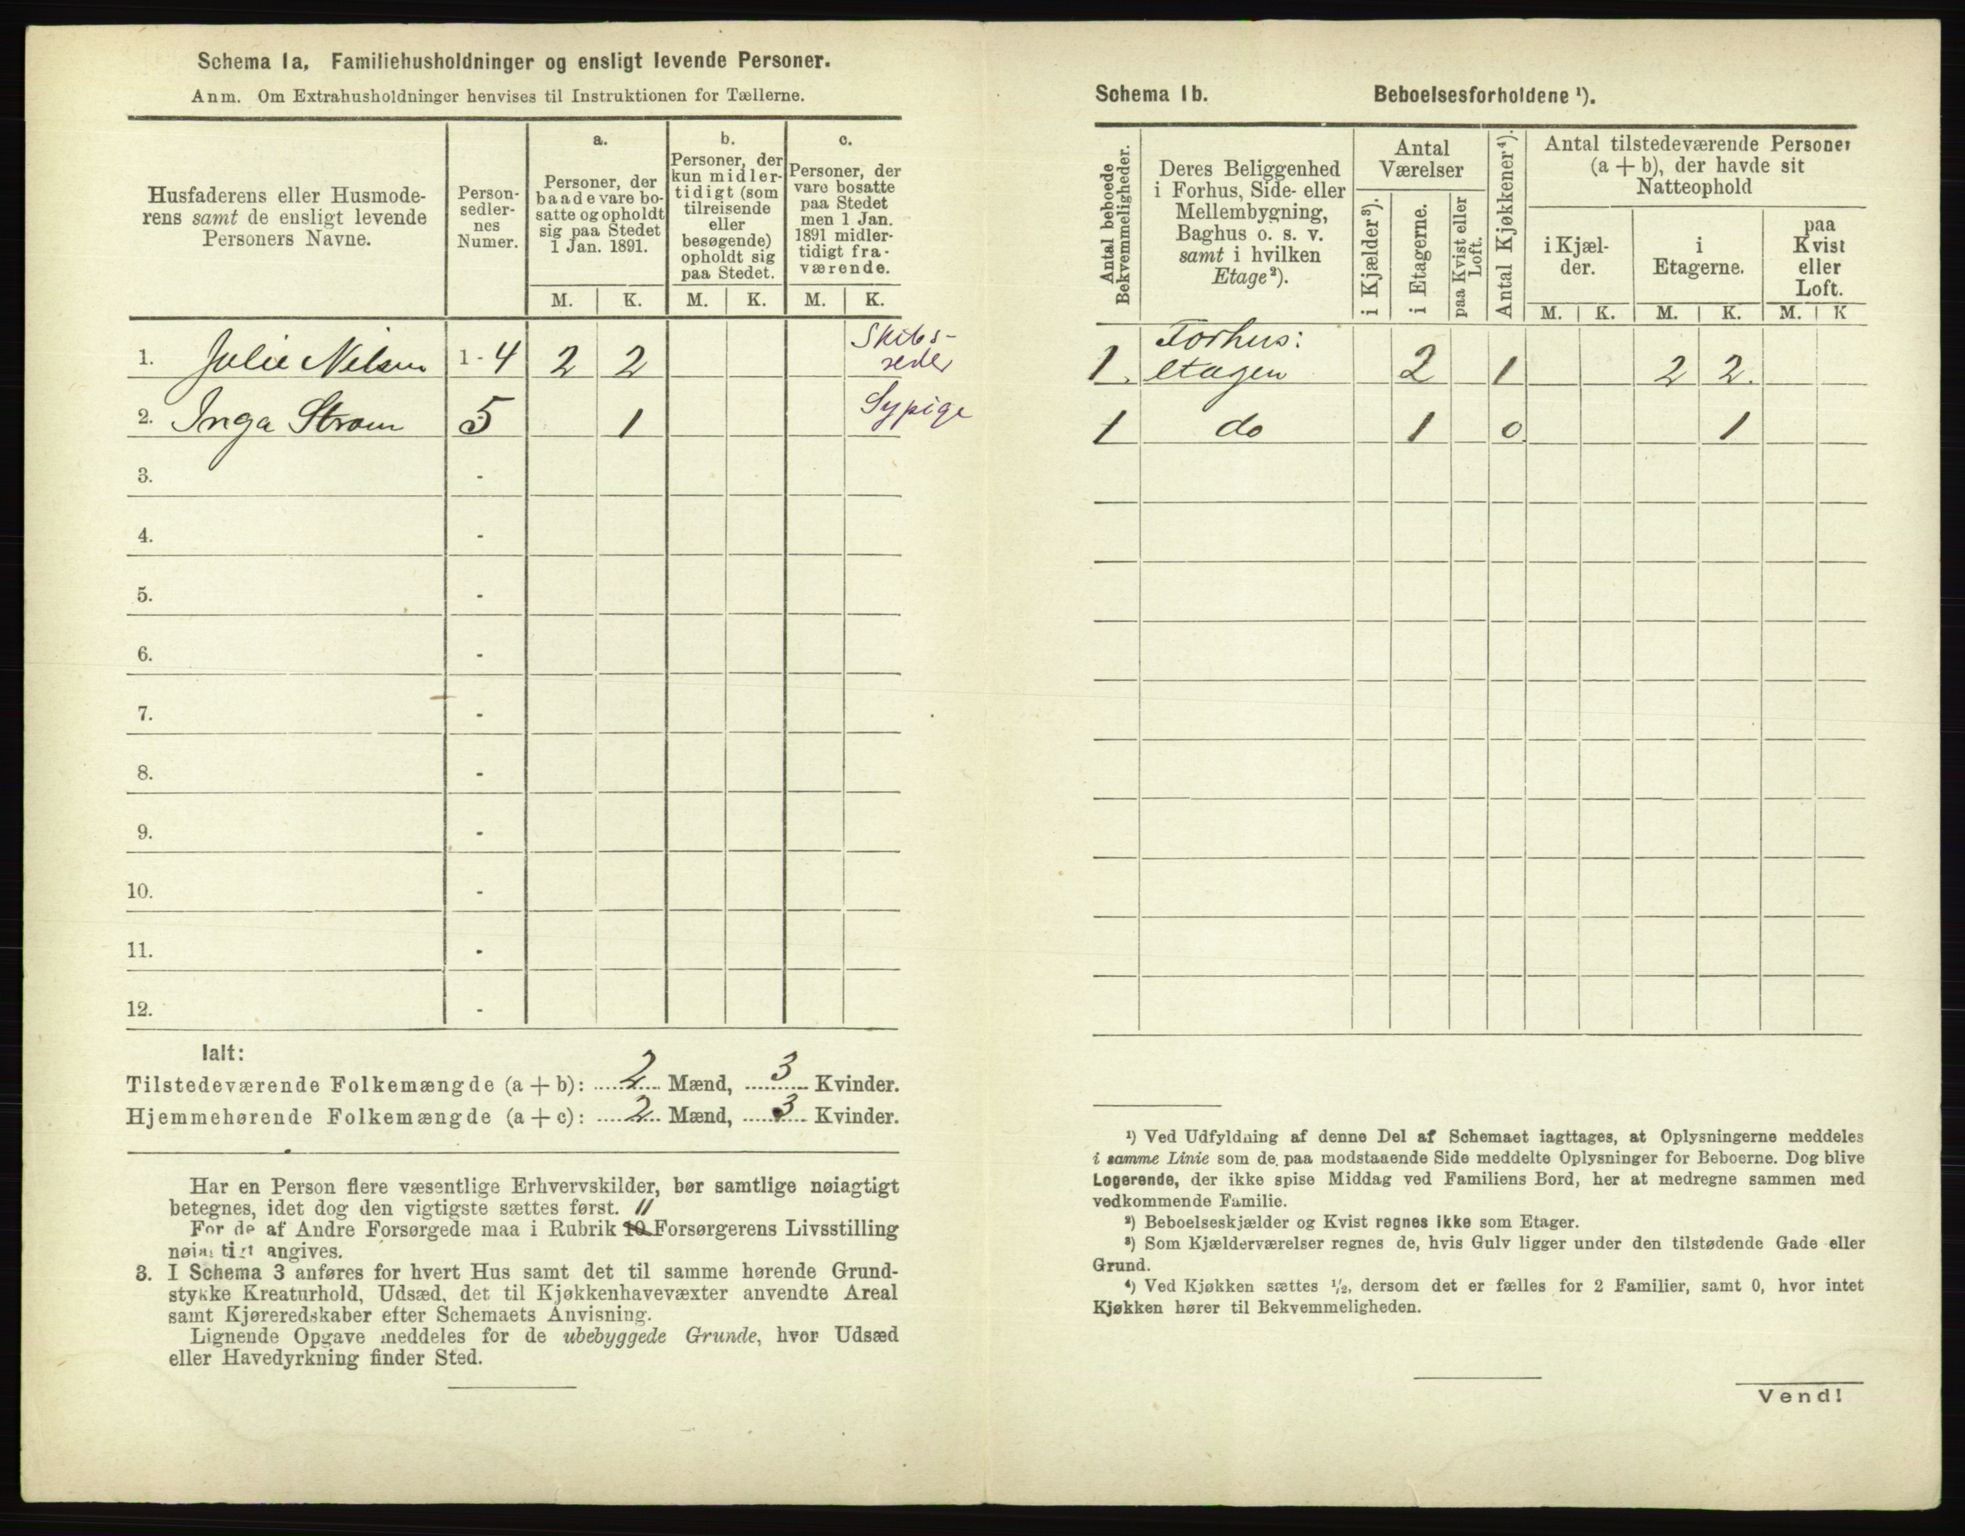 Schema 1a. Familiehusholdninger og ensligt levende Personer.
Anm. Om Extrahusholdninger henvises til Instruktionen for Tællerne.
Husfaderens eller Husmode-
rens samt de ensligt levende
Personers Navne.
Person-
sedler-
nes
Numer.
a.
Personer, der
baade vare bo-
satte og opholdt
sig paa Stedet
1 Jan. 1891.
b.
Personer, der
kun midler-
tidigt (som
tilreisende
eller
besøgende)
opholdt sig
paa Stedet.
c.
Personer, der
vare bosatte
paa Stedet
men 1 Jan.
1891 midler-
tidigt fra-
værende.
M. K. M. K. M. K.
1. Julie Nilsen 1 - 4 2 2 Skibs-
reder
2. Inga Strøm 5 1 Sypige
3. -
4. -
5. -
6. -
7. -
8. -
9. -
10. -
11. -
12. -
Ialt:
Tilstedeværende Folkemængde (a + b): 2 Mænd, 3 Kvinder.
Hjemmehørende Folkemængde (a + c): 2 Mænd, 3 Kvinder.
Har en Person flere væsentlige Erhvervskilder, bør samtlige nøiagtigt
betegnes, idet dog den vigtigste sættes først. 11
For de af Andre Forsørgede maa i Rubrik 10 Forsørgerens Livsstilling
nøiagtigt angives.
3. I Schema 3 anføres for hvert Hus samt det til samme hørende Grund-
stykke Kreaturhold, Udsæd, det til Kjøkkenhavevæxter anvendte Areal
samt Kjøreredskaber efter Schemaets Anvisning.
Lignende Opgave meddeles for de ubebyggede Grunde, hvor Udsæd
eller Havedyrkning finder Sted.
Schema 1b. Beboelsesforholdene ¹).
Antal beboede
Bekvemmeligheder.
Deres Beliggenhed
i Forhus, Side- eller
Mellembygning,
Baghus o. s. v.
samt i hvilken
Etage²).
Antal
Værelser
i Kjælder³).
i Etagerne.
paa Kvist eller
Loft.
Antal Kjøkkener⁴).
Antal tilstedeværende Personer
(a + b), der havde sit
Natteophold
i Kjæl-
der.
i
Etagerne.
paa
Kvist
eller
Loft.
M. K. M. K. M. K
Forhus:
1. etagen 2 1 2 2.
1 do 1 0 1
¹) Ved Udfyldning af denne Del af Schemaet iagttages, at Oplysningerne meddeles
i samme Linie som de paa modstaaende Side meddelte Oplysninger for Beboerne. Dog blive
Logerende, der ikke spise Middag ved Familiens Bord, her at medregne sammen med
vedkommende Familie.
²) Beboelseskjælder og Kvist regnes ikke som Etager.
³) Som Kjælderværelser regnes de, hvis Gulv ligger under den tilstødende Gade eller
Grund.
⁴) Ved Kjøkken sættes ½, dersom det er fælles for 2 Familier, samt 0, hvor intet
Kjøkken hører til Bekvemmeligheden.
Vend!